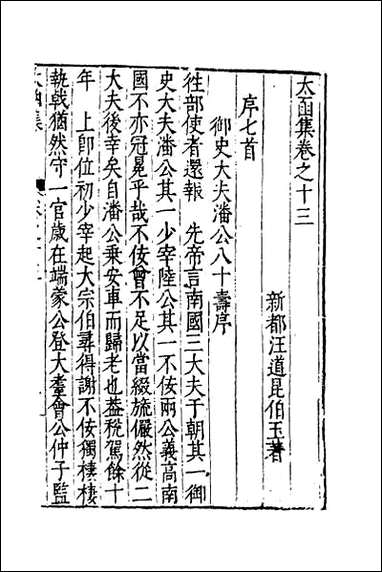 太函集卷之十三
新都汪道昆伯玉著
序七首
御史大夫潘公八十壽序
徃部使者還報　先帝言南國三大夫于朝其一御
史大夫潘公其一少宰陸公其一不佞兩公義高南
國不亦冠冕乎哉不佞曾不足以當綴旒儼然從二
大夫後幸矣自潘公乗安車而歸老也葢稅駕餘十
年　上卽位初少宰起大宗伯尋得謝不佞獨棲棲
執戟猶然守一官歳在端蒙公登大耋會公仲子監